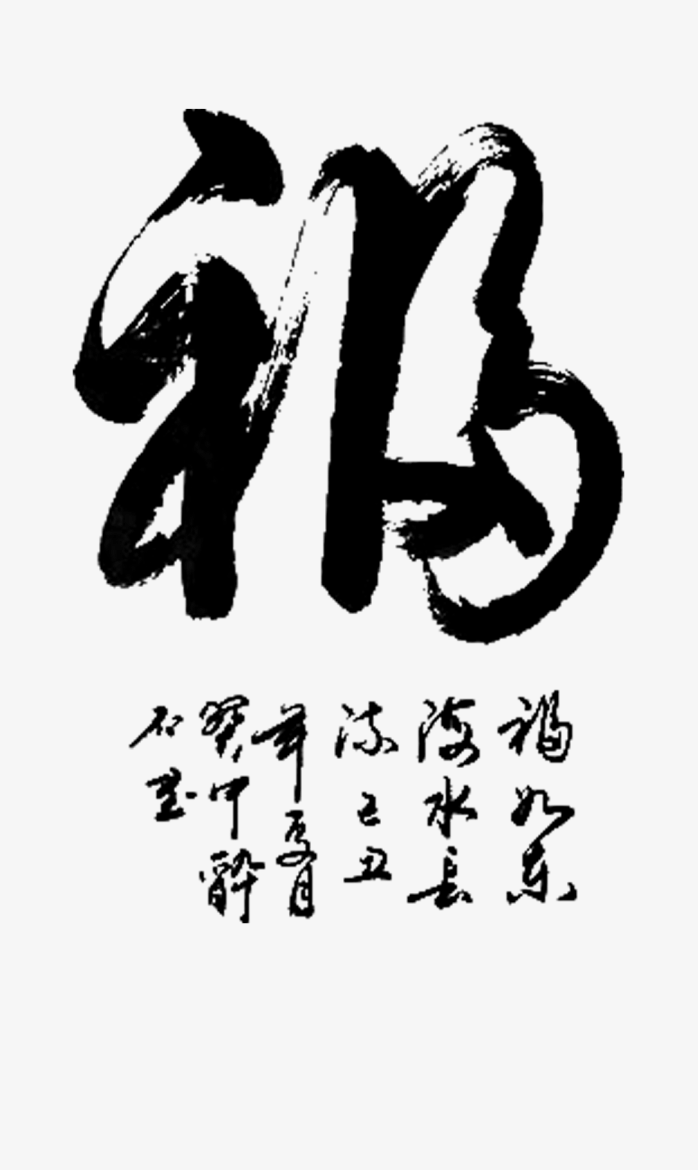 福
福如东
海水长
流己丑
年夏月
癸中醉
石